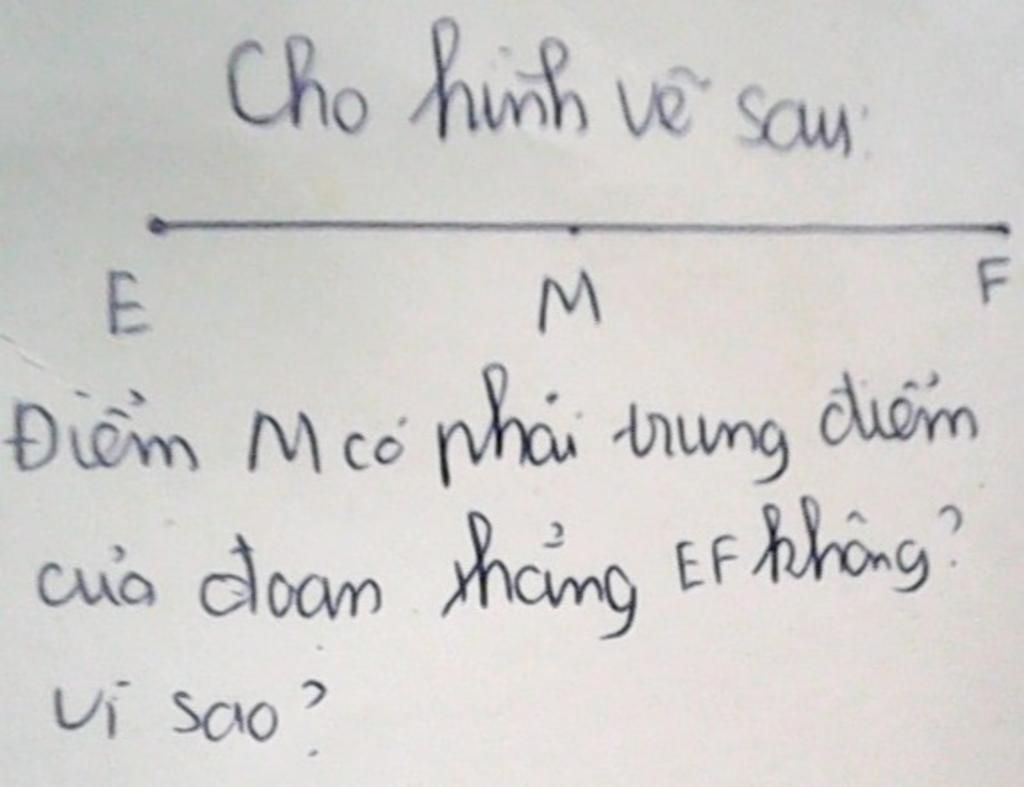 Cho hình vẽ sau:
E M F
Điểm M có phải trung điểm
của đoan thẳng EF không?
Vì sao?